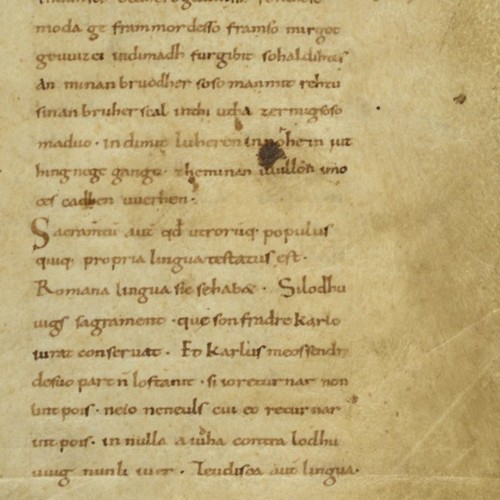 moda ge frammordesso framso mirgot
geuuizci indimadh furgibit sohaldihes
an minan bruodher soso manmit rehtu
sinan bruher scal inthi utha zermigsoso
maduo · indimit luheren innohein iut
hing nege gango · zheminan uuillon imo
ces cadhen uuerhen ·
Sacramentũ aut qđ utrorũq; populus
quiq; propria lingua testatus est ·
Romana lingua sic se habæ · Silodhu
uigs sagrament · que son fradre karlo
iurat conseruat · Et karlus meossendr
desuo part ñ lostanit · si io returnar non
lint pois · neio neneuls cui eo returnar
int pois · in nulla aiuha contra lodhu
uuig nunli iuer · Teudisca aut lingua ·